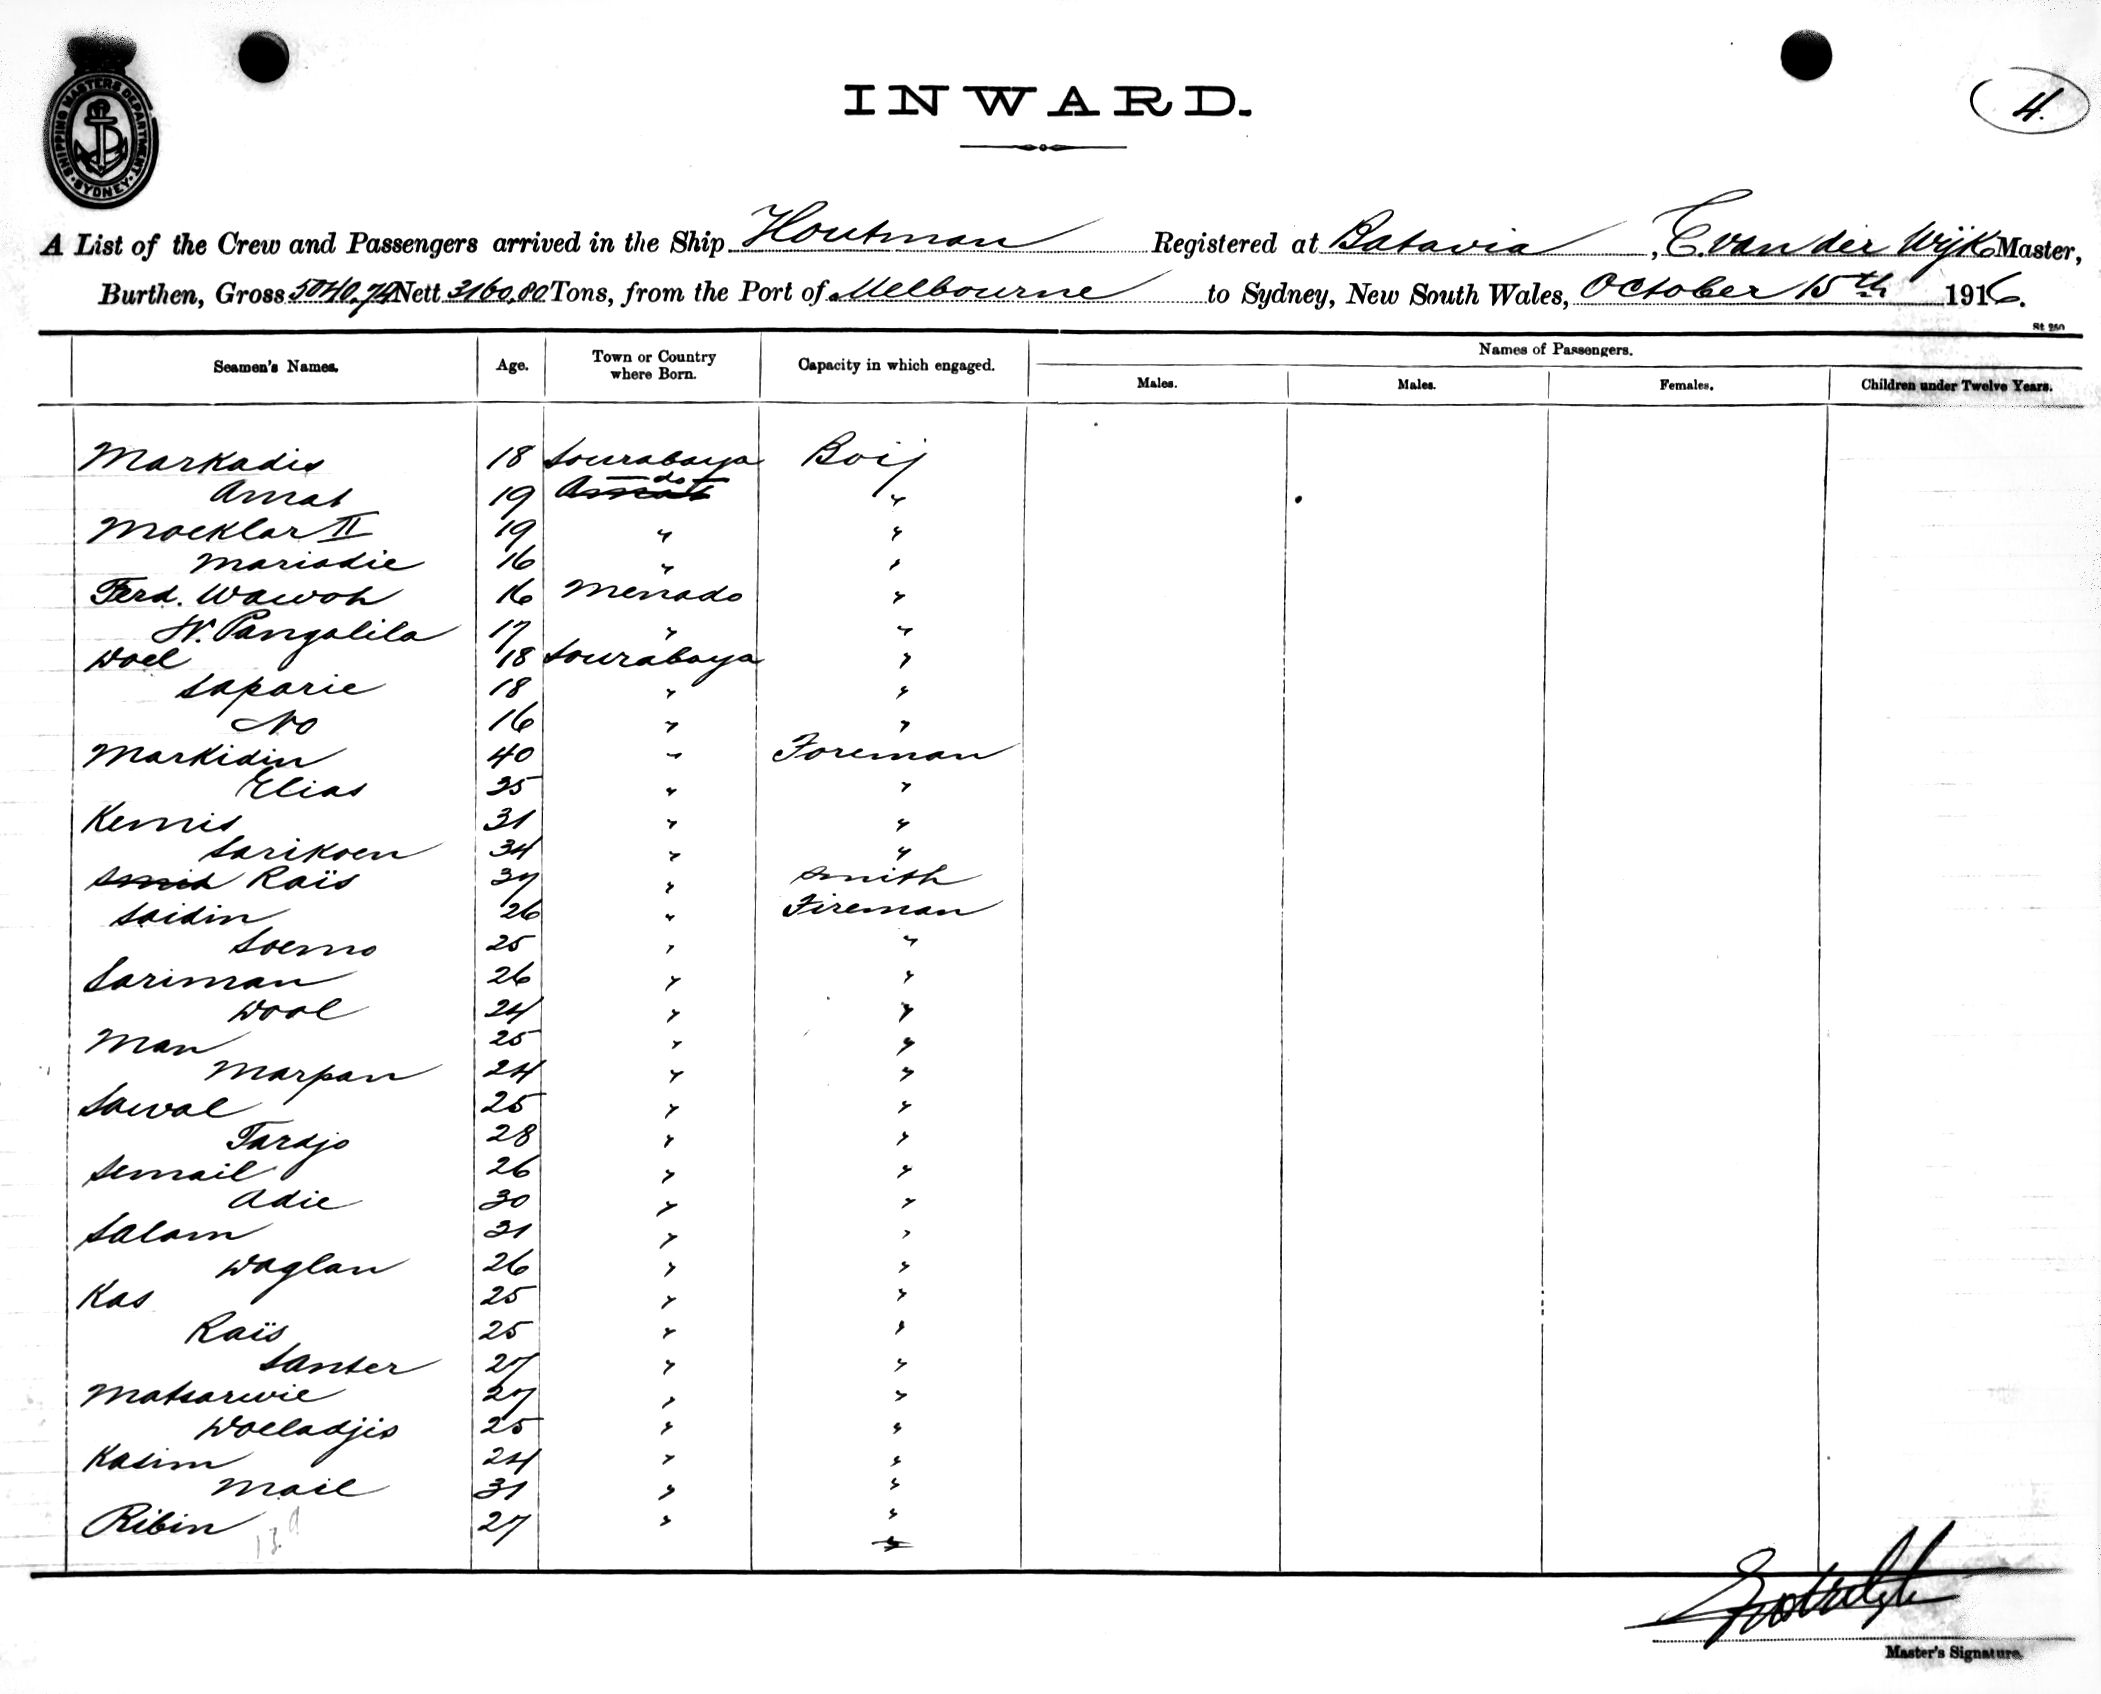 SHIPPING MASTERS DEPARTMENT
SYDNEY
INWARD.
4.
A List of the Crew and Passengers arrived in the Ship Houtman Registered at Batavia, C. van der Wijk Master,
Burthen, Gross 5040,74 Nett 3160,80 Tons, from the Port of Melbourne to Sydney, New South Wales, October 15th 1916.
St 250
Seamen's Names. Age. Town or Country where Born. Capacity in which engaged. Names of Passengers.
Males. Males. Females. Children under Twelve Years.
Markadis 18 Sourabaya Boij
Amat 19 Amat do "
Moeklar II 19 " "
Mariadie 16 " "
Ferd. Wawoh 16 Menado "
W. Pangalila 17 " "
Woel 18 Sourabaya "
Saparie 18 " "
No 16 " "
Markidin 40 " Foreman
Elias 35 " "
Kemis 31 " "
Sarikoen 34 " "
Smid Raïs 37 " Smith
Saidin 26 " Fireman
Soemo 25 " "
Sariman 26 " "
Wool 24 " "
Man 25 " "
Marpan 24 " "
Sawal 25 " "
Tardjo 28 " "
Semail 26 " "
Adie 30 " "
Salam 31 " "
Waglan 26 " "
Kas 25 " "
Raïs 25 " "
Santer 27 " "
Matsarwie 27 " "
Woeladjis 25 " "
Kasim 24 " "
Mail 31 " "
Ribin 27 " "
"
Master's Signature.